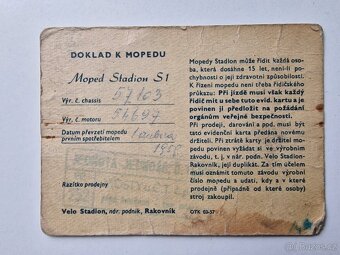 DOKLAD K MOPEDU
Moped Stadion S1
Výr. č. chassis 57163
Výr. č. motoru 56697
Datum převzetí mopedu
prvním spotřebitelem
1958
Razítko prodejny
Velo Stadion, nár. podnik, Rakovník
Mopedy Stadion může řídit každá osoba,
která dosáhne 15 let, není-li
pochybnosti o její zdravotní způsobilosti.
K řízení mopedu není třeba řidičského
průkazu. Při jízdě musí však každý
řidič mít u sebe tuto evid. kartu a je
povinen ji předložit na požádání
orgánům veřejné bezpečnosti.
Při prodeji, darování a pod. musí být
tato evidenční karta předána novému
držiteli. Při ztrátě karty je držitel mopedu
povinen vyžádati si od výrobního
závodu, t. j. v nár. podn. Velo Stadion-
Rakovník, její duplikát. Za tím
účelem musí oznámit tomuto závodu výrobní
číslo mopedu a udati, v které prodejně
(případně od které osoby)
stroj zakoupil.
OTK 60-57